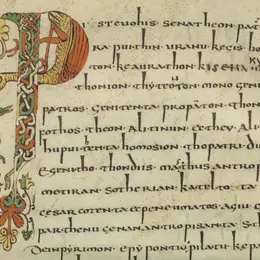 Psteuohis senatheon pat
ra punthin uranu kegis ho
ton keaurathon kisena
thonion thyteuton monogeni
patros genitenta propaton thon
fothos theon alithinu ec they ali
hupu tenta homosion tho patri di
egenitho thondi mas thus antrop
metiran sotherian katelto ta
cesar cotenta ecpeneumatos agiu
parthenu cenanantropisanta st
deinpyrimon epy pontiu pilatu kepa